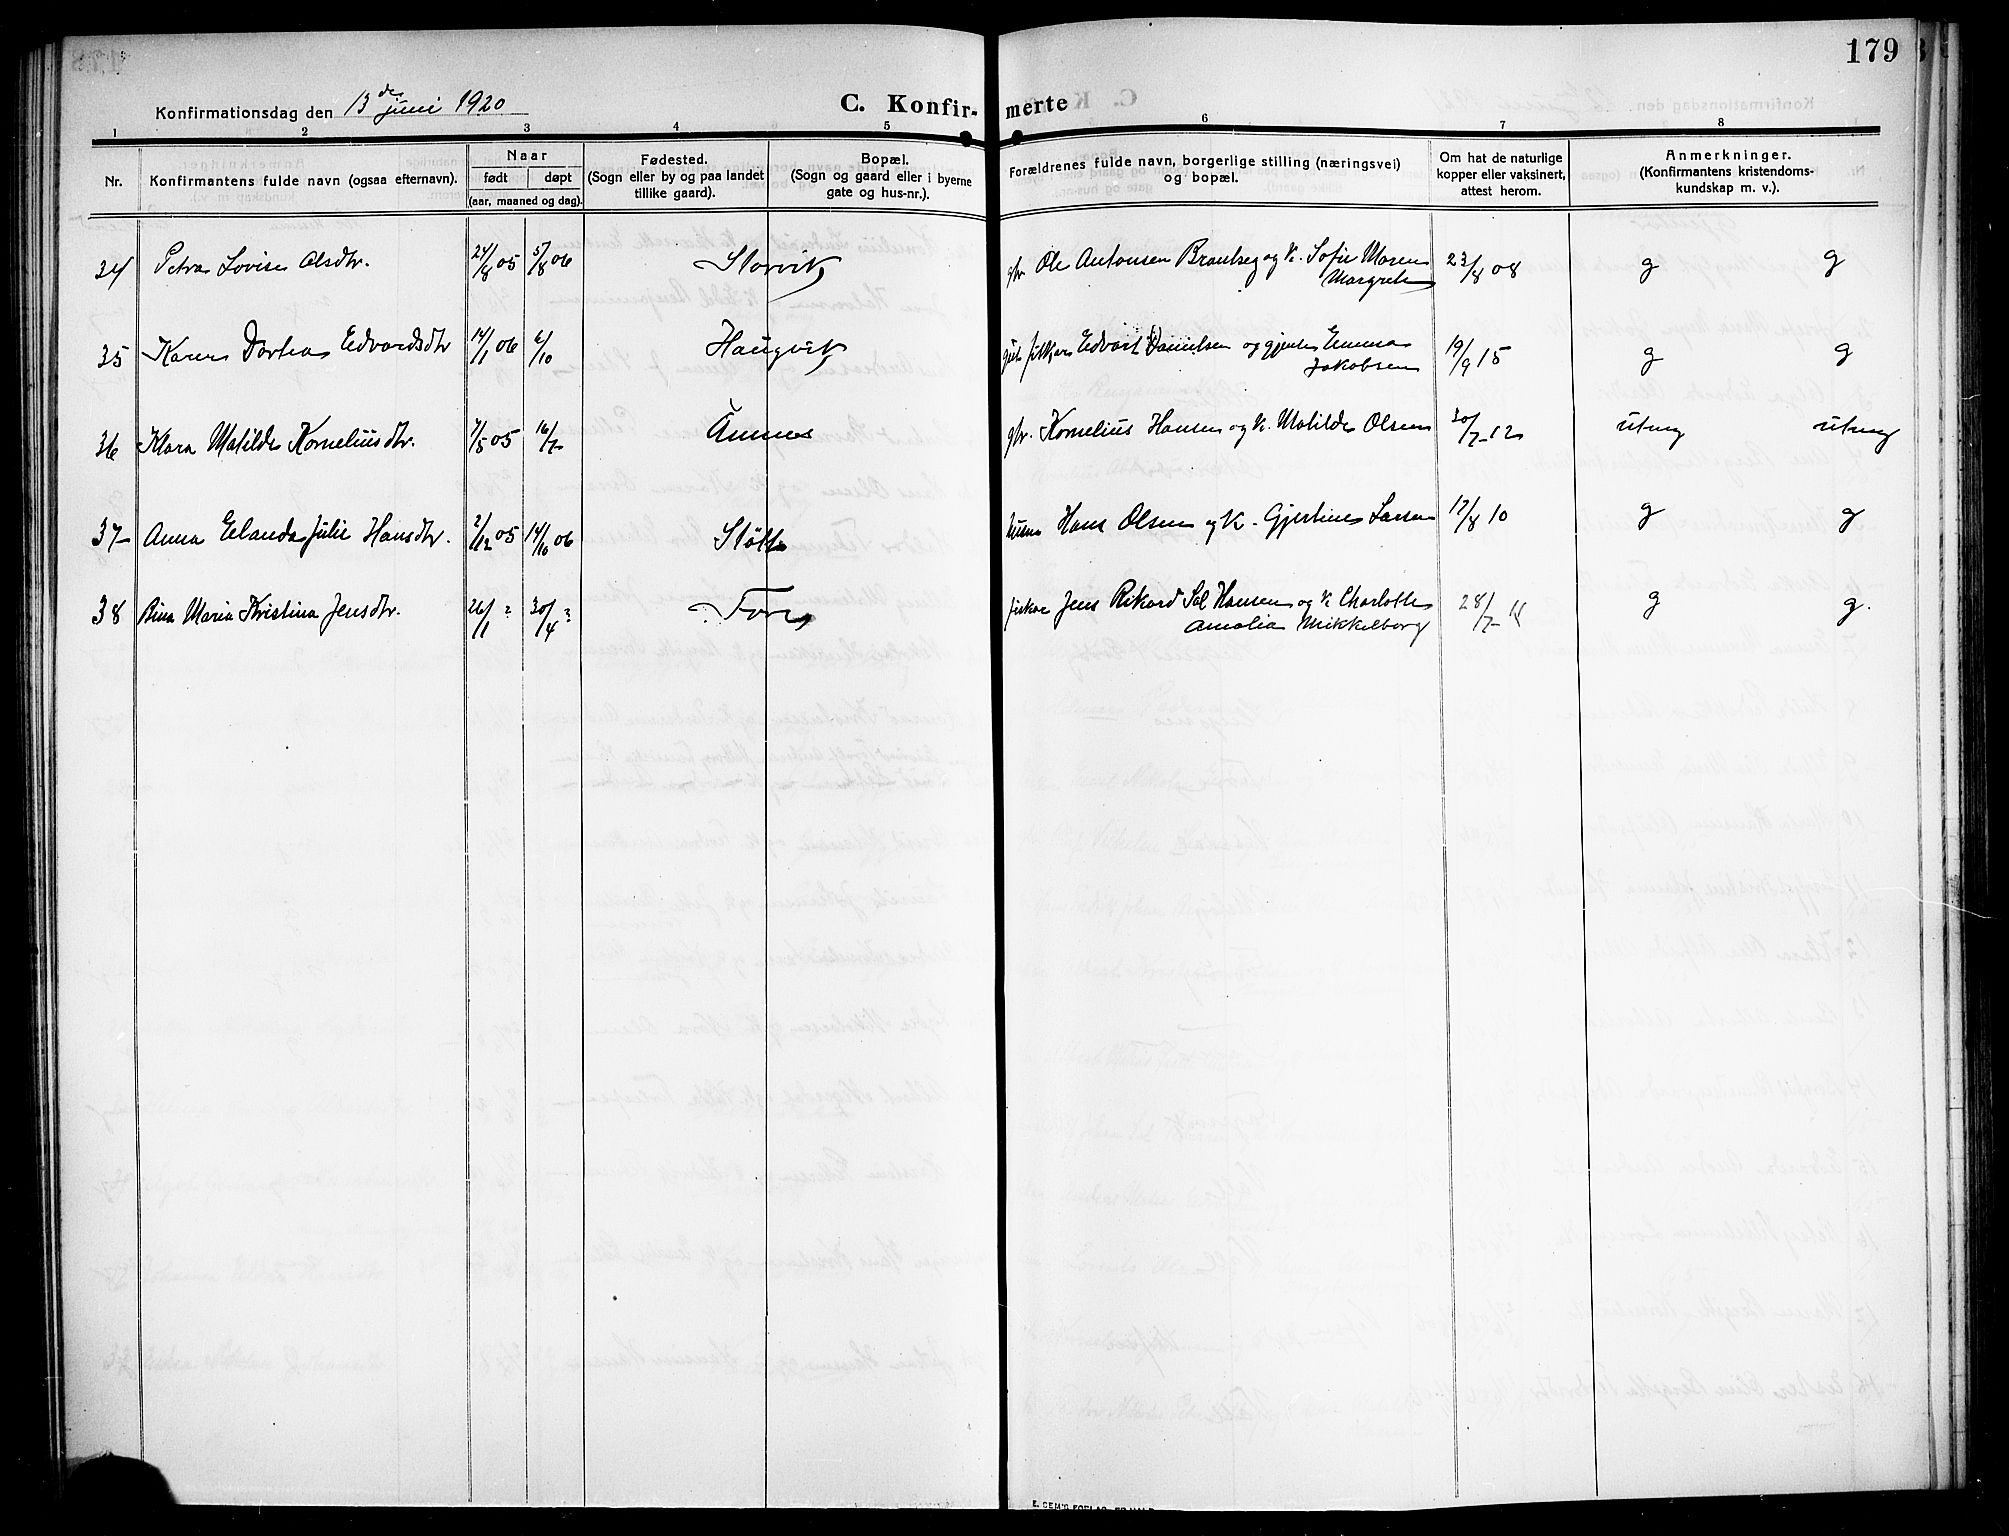 179
Konfirmationsdag den 13de juni 1920
C. Konfir- merte
1 2 3 4 5 6 7 8
Nr.
Konfirmantens fulde navn (ogsaa efternavn).
Naar
født døpt
(aar, maaned og dag).
Fødested.
(Sogn eller by og paa landet
tillike gaard).
Bopæl.
(Sogn og gaard eller i byerne
gate og hus-nr.).
Forældrenes fulde navn, borgerlige stilling (næringsvei)
og bopæl.
Om hat de naturlige
kopper eller vaksinert,
attest herom.
Anmerkninger.
(Konfirmantens kristendoms-
kundskap m. v.).
34 Petra Lovise Olsdtr. 24/8 05 5/8 06 Storvik gbr. Ole Antonsen Brantseg og k. Sofie Maren 23/8 08 g g
Margrete
35 Karen Dortea Edvardsdtr 14/1 06 6/10 Haugvik Edvart Danielsen og gjente Emma 19/9 15 g g
Jakobsen
36 Klara Matilde Korneliusdtr. 7/5 05 16/7 Åmnes gbr. Kornelius Hansen og k. Matilde Olsen 30/7-12 utmg utmg
37 Anna Elanda Julie Hansdtr. 2/12 05 14/10 06 Støtt Hans Olsen og k. Gjertine Larsen 17/8 10 g g
38 Bina Maria Kristina Jensdtr. 26/1 ? 30/4 ? Fore fisker Jens Rikard Sal Hansen og k. Charlotte 28/7- g g.
Amalia Mikkelborg